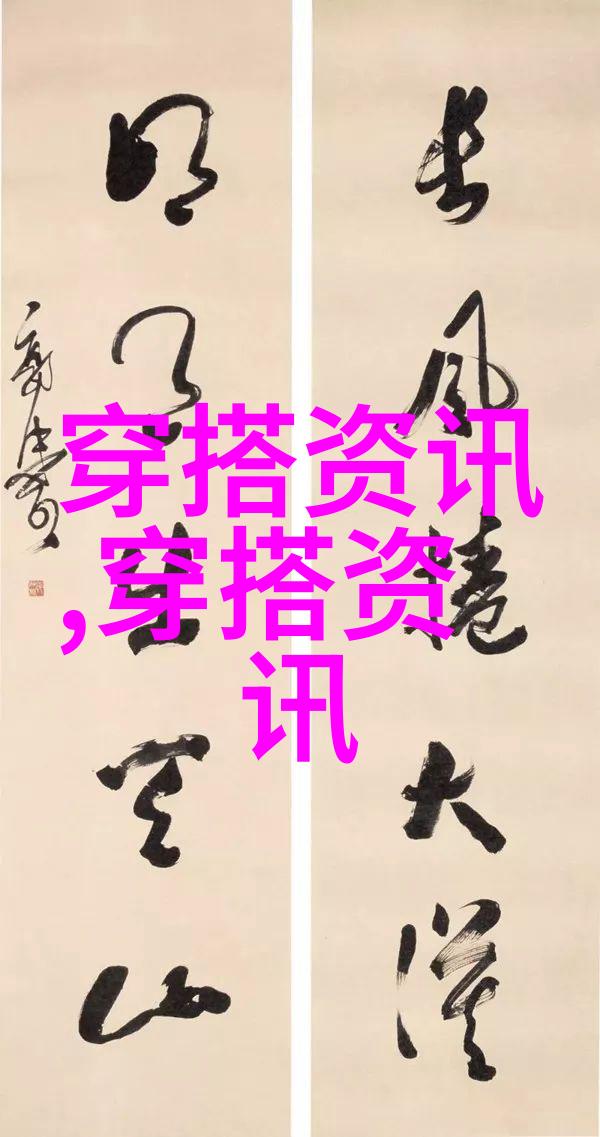 長風捲大漠
明月天山
穿搭资讯
,穿搭资
讯